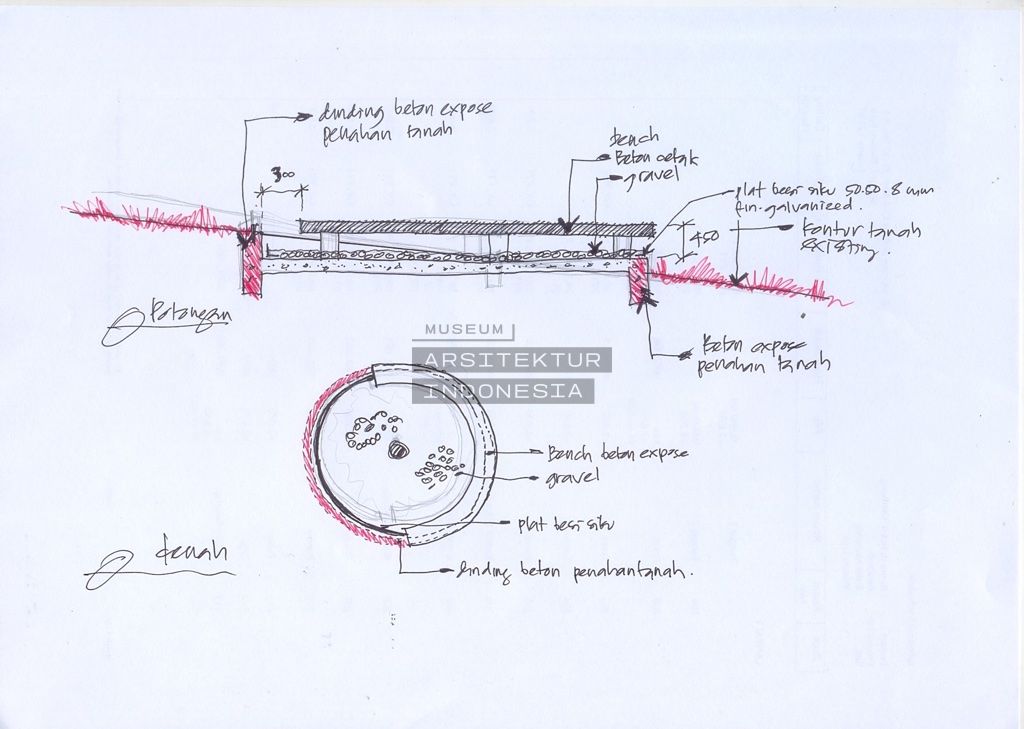 dinding beton expose
penahan tanah
300
bench
Beton cetak
gravel
plat besi siku 50.50.8 mm
fin. galvanized.
450
kontur tanah
EXISTING.
Potongan
Beton expose
penahan tanah
MUSEUM
ARSITEKTUR
INDONESIA
Bench beton expose
gravel
plat besi siku
denah
dinding beton penahan tanah.